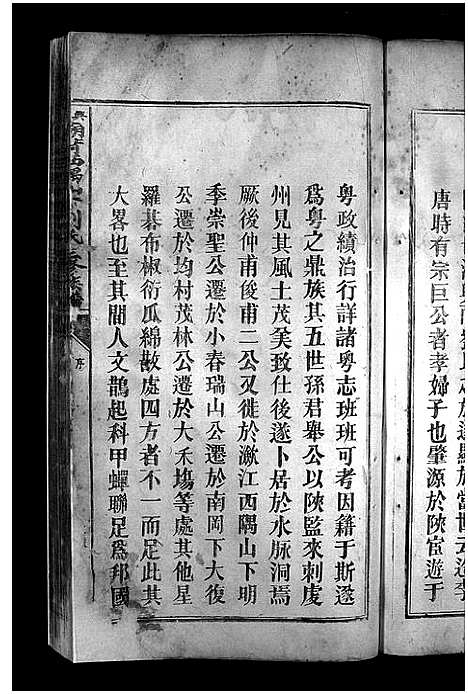 唐時有宗巨公者孝婦子也肇源於陝宦遊于
粵政績治行詳諸粵志班班可考因籍于斯遂
爲粵之鼎族其五世孫君舉公以陝監來刺虔
州見其風土茂美致仕後遂卜居於水脉洞焉
厥後仲甫俊甫二公又徙於潋江西隅山下明
季崇聖公遷於小春瑞山公遷於南岡下大復
公遷於均村茂林公遷於大禾塲等處其他星
羅碁布椒衍瓜綿散處四方者不一而足此其
大畧也至其間人文鵲起科甲蟬聯足爲邦國
序